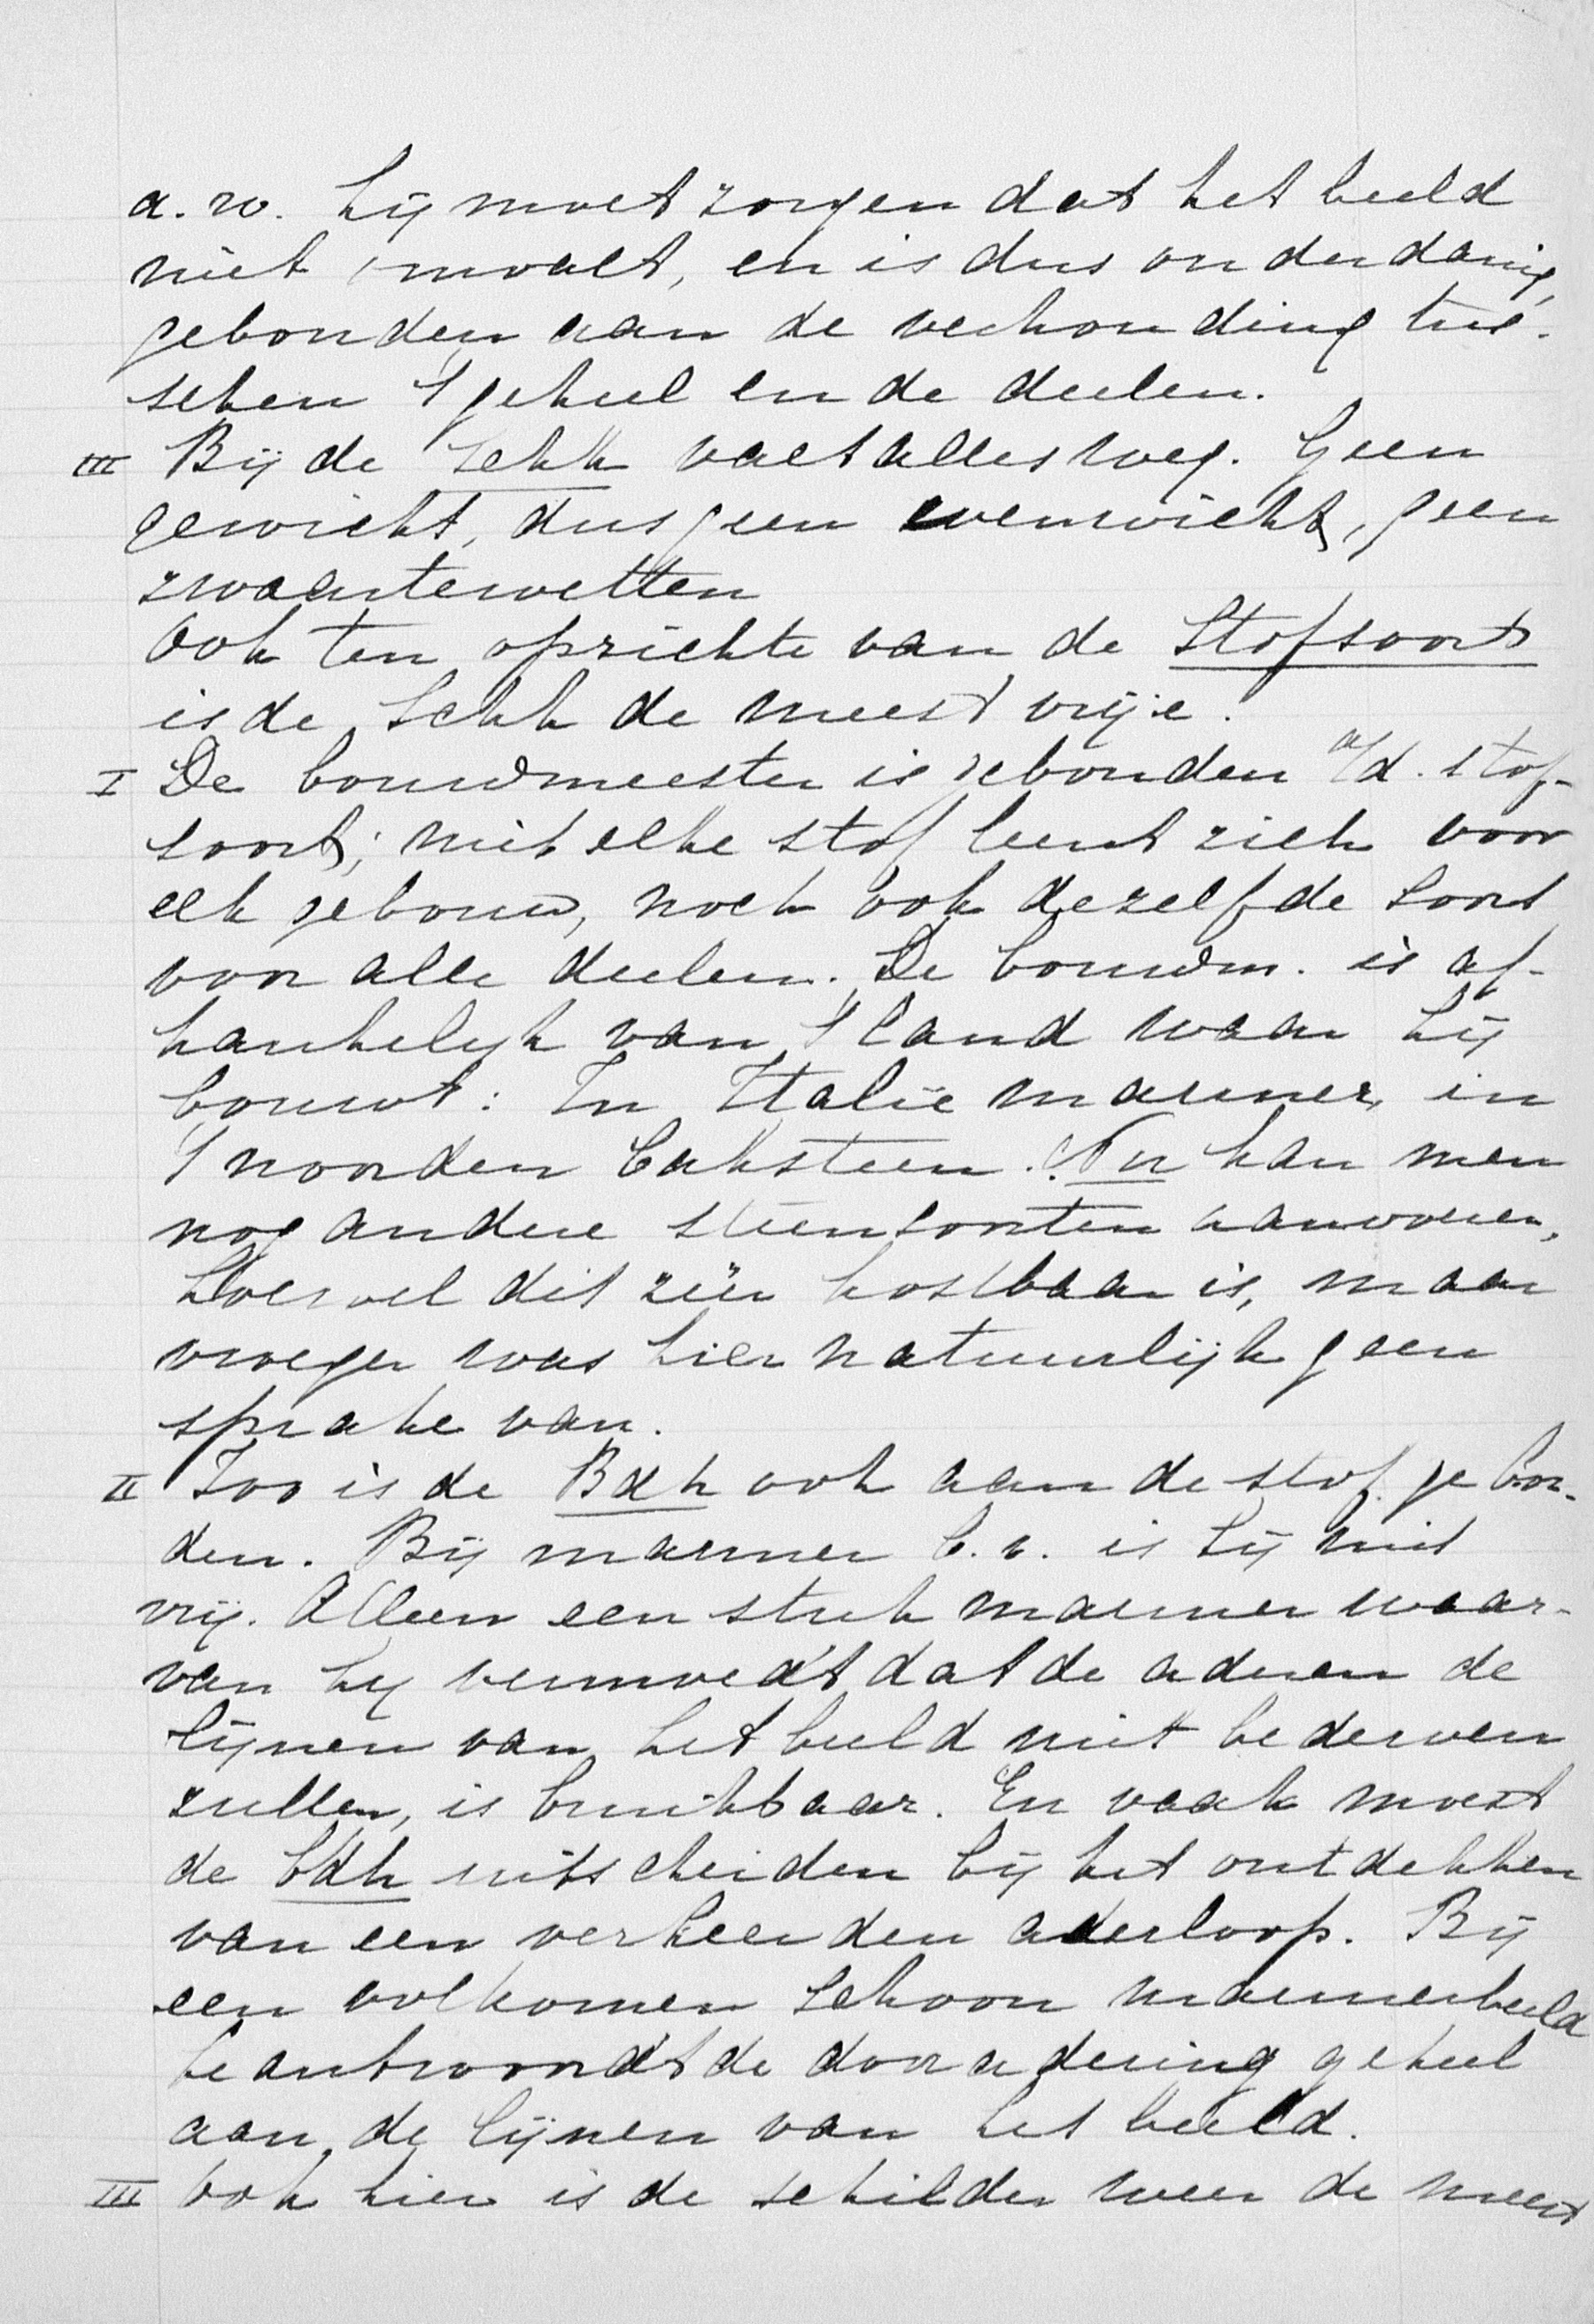 a.w. hij moet zorgen dat het beeld
niet omvalt, en is dus onderdanig,
gebonden aan de verhouding tus-
schen 't geheel en de deelen.
III Bij de Schk valt alles weg. Geen
gewicht, dus geen evenwicht, geen
zwaartewetten
Ook ten opzichte van de Stofsoort
is de Schk de meest vrije.
I De bouwmeester is gebonden a/d. stof-
soort; niet elke stof leent zich voor
elk gebouw, noch ook dezelfde soort
voor alle deelen. De bouwm. is af-
hankelijk van 't land waar hij
bouwt: In Italië marmer, in
't noorden baksteen. Nu kan men
nog andere steensoorten aanvoeren,
hoewel dit zéér kostbaar is, maar
vroeger was hier natuurlijk geen
sprake van.
II Zoo is de Bdh ook aan de stof gebon-
den. Bij marmer b.v. is hij niet
vrij. Alleen een stuk marmer waar-
van hij vermoedt dat de aderen de
lijnen van het beeld niet bederven
zullen, is bruikbaar. En vaak moest
de bdh uitscheiden bij het ontdekken
van een verkeerden aderloop. Bij
een volkomen schoon marmerbeeld
beantwoordt de dooradering geheel
aan de lijnen van het beeld.
III Ook hier is de schilder weer de meest